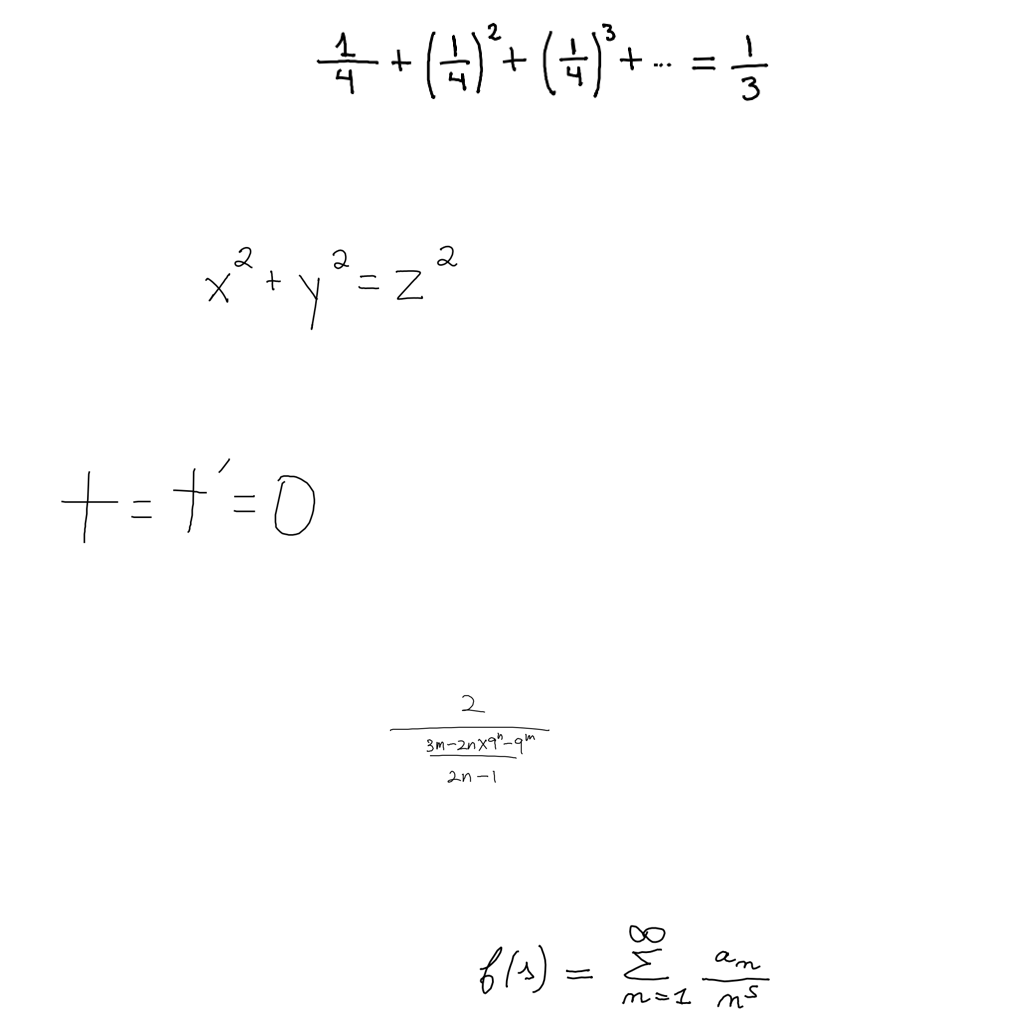 \frac{1}{4} + \left(\frac{1}{4}\right)^2 + \left(\frac{1}{4}\right)^3 + \dots = \frac{1}{3}
x^2 + y^2 = z^2
t = t' = 0
\frac{2}{\frac{3m - 2n \times 9^n - 9^m}{2n - 1}}
f(s) = \sum_{n=1}^{\infty} \frac{a_n}{n^s}